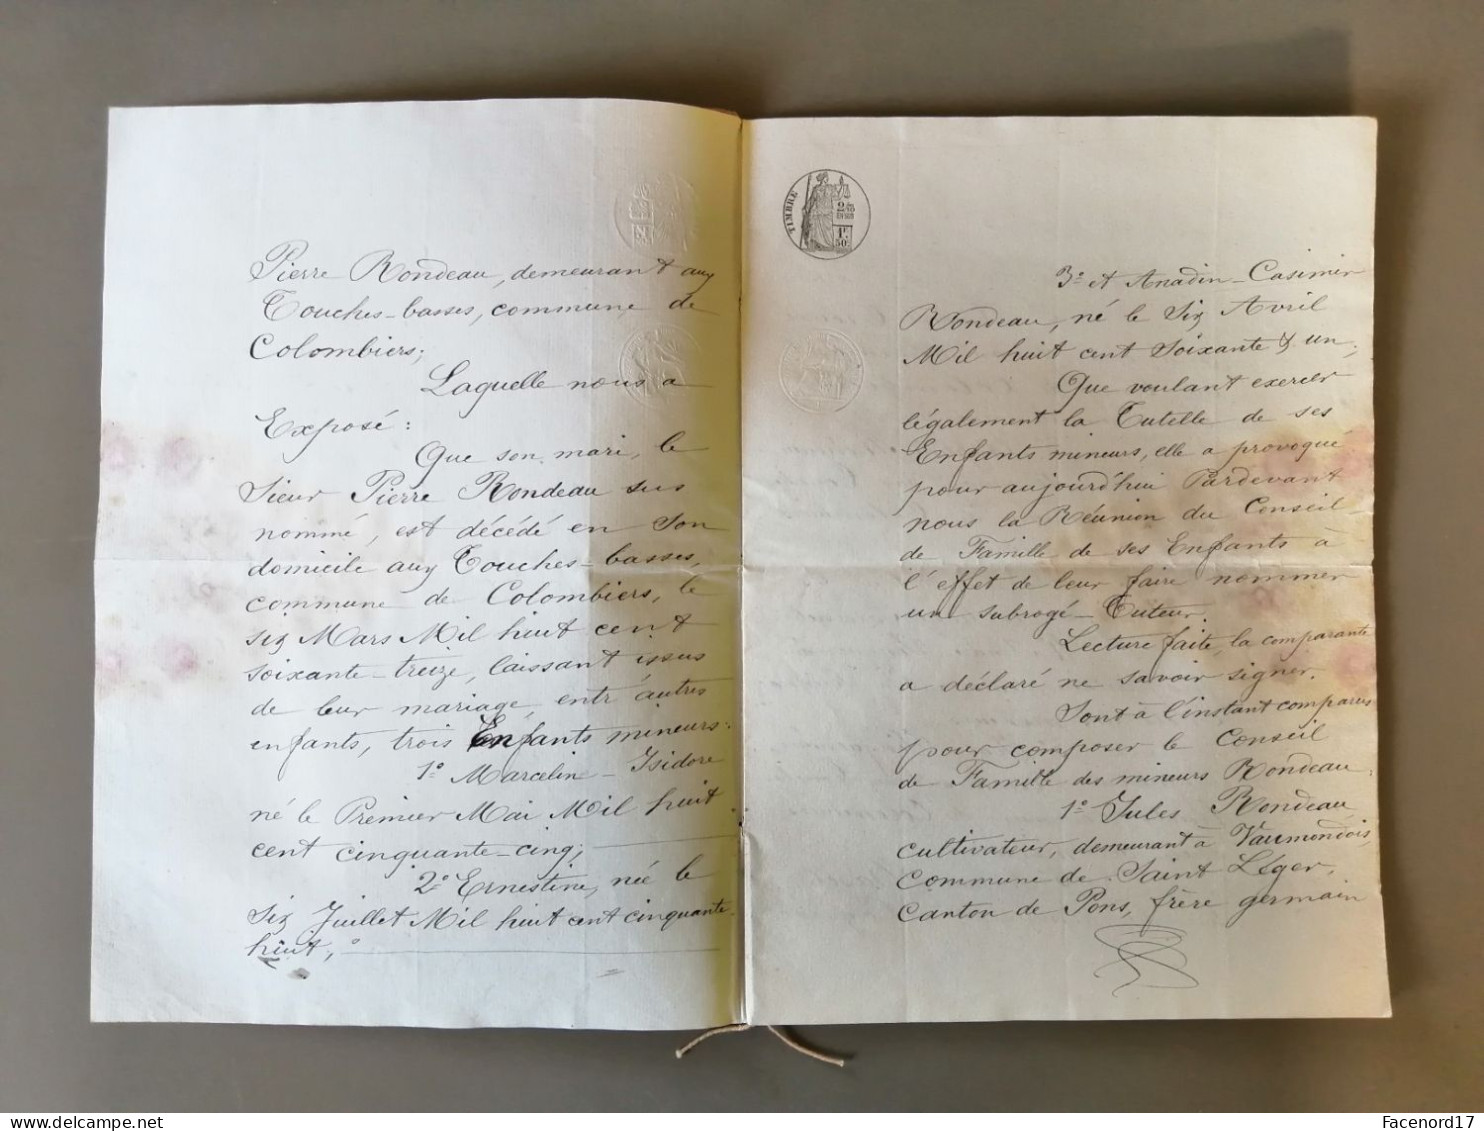 Pierre Rondeau, demeurant aux
Touches-basses, commune, de
Colombiers;
Laquelle nous a
Exposé:
Que son mari, le
Sieur Pierre Rondeau sus
nommé, est décédé en son
domicile aux Touches-basses,
commune de Colombiers, le
six Mars Mil huit cent
soixante-treize, laissant issus
de leur mariage, entr'autres
enfants, trois Enfants mineurs:
1º Marcelin-Isidore
né le Premier Mai Mil huit
cent cinquante-cinq;
2º Ernestine, née le
Six Juillet Mil huit cent cinquante-
huit;
TIMBRE
2/10
EN SUS
1F.
50C.
3º et Anadin-Casimir
Rondeau, né le Six Avril
Mil huit cent Soixante & un;
Que voulant exercer
légalement la Tutelle de ses
Enfants mineurs, elle a provoqué
pour aujourd'hui Pardevant
nous la Réunion du Conseil
de Famille de ses Enfants à
l'effet de leur faire nommer
un subrogé-Tuteur.
Lecture faite, la comparante
a déclaré ne savoir signer.
Sont à l'instant comparus
pour composer le Conseil
de Famille des mineurs Rondeau:
1º Jules Rondeau,
cultivateur, demeurant à Vaumondois,
Commune de Saint Léger,
Canton de Pons, frère germain
delcampe.net
Facenord17